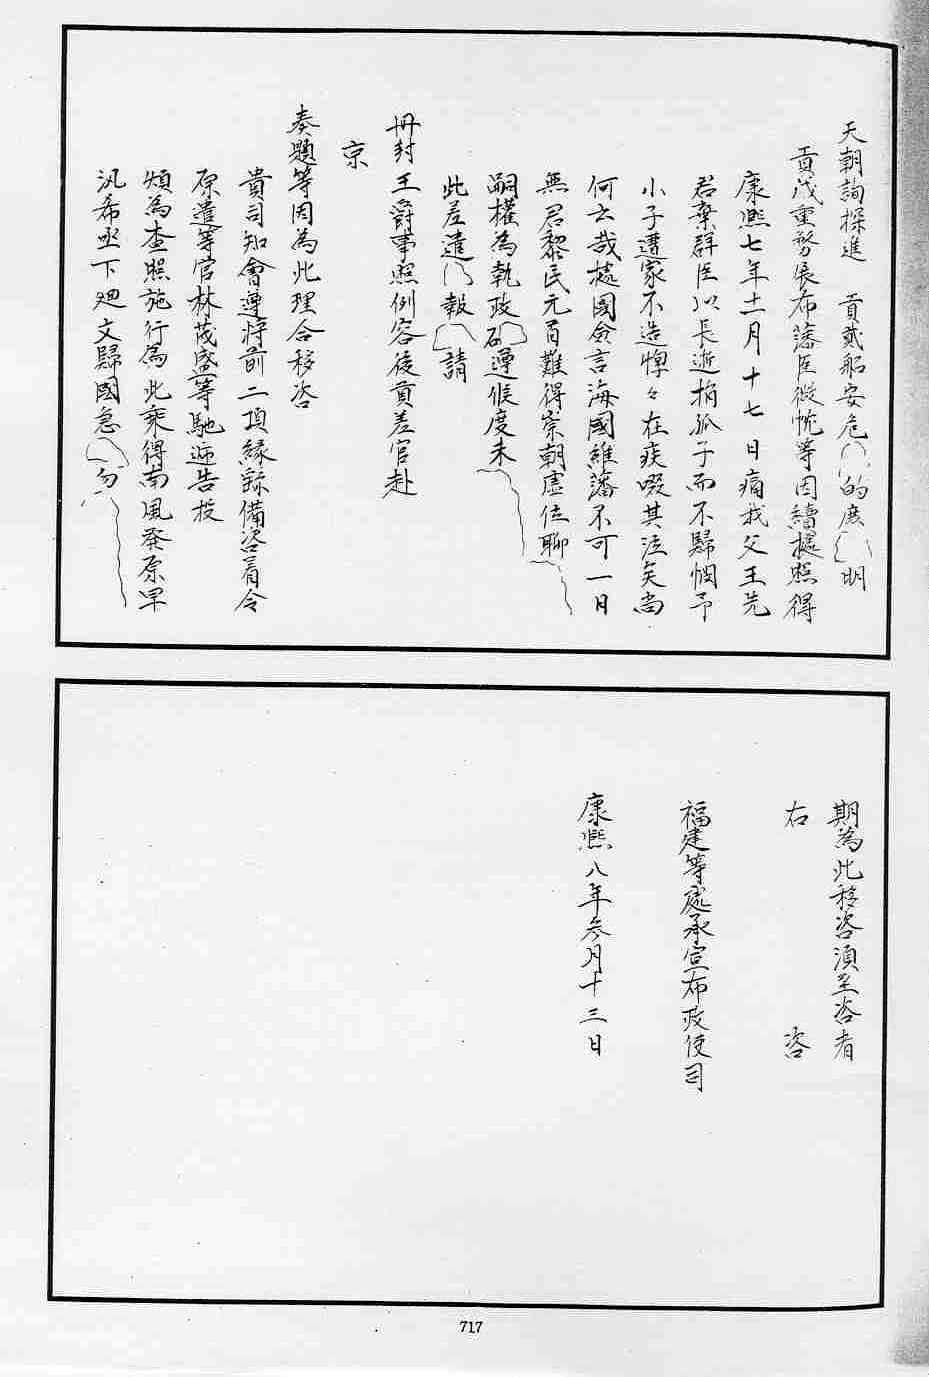 天朝詢探進　貢貳船安危　的庶　明
貢茂重勞張布藩臣微忱等因續㨿照得
康熙七年十一月十七日痛我父王先
君棄群臣以長逝捐孤子而不歸憫予
小子遭家不造惸々在疚啜其泣矣尚
何云哉㨿國僉言海國維藩不可一日
無君黎民元首難得崇朝虛位聊
嗣權為執政　遵候度未
此差遣　報　請
冊封王爵事照例容後貢差官赴
京
奏題等因為此理合移咨
貴司知會遵將前二項緣繇備咨着令
原遣等官林茂盛等馳遞告投
煩為查照施行為此乘得南風發原早
汎希亟下廻文歸國急　勿
期為此移咨須至咨者
右　　咨
福建等處承宣布政使司
康熙八年叁月十三日
717